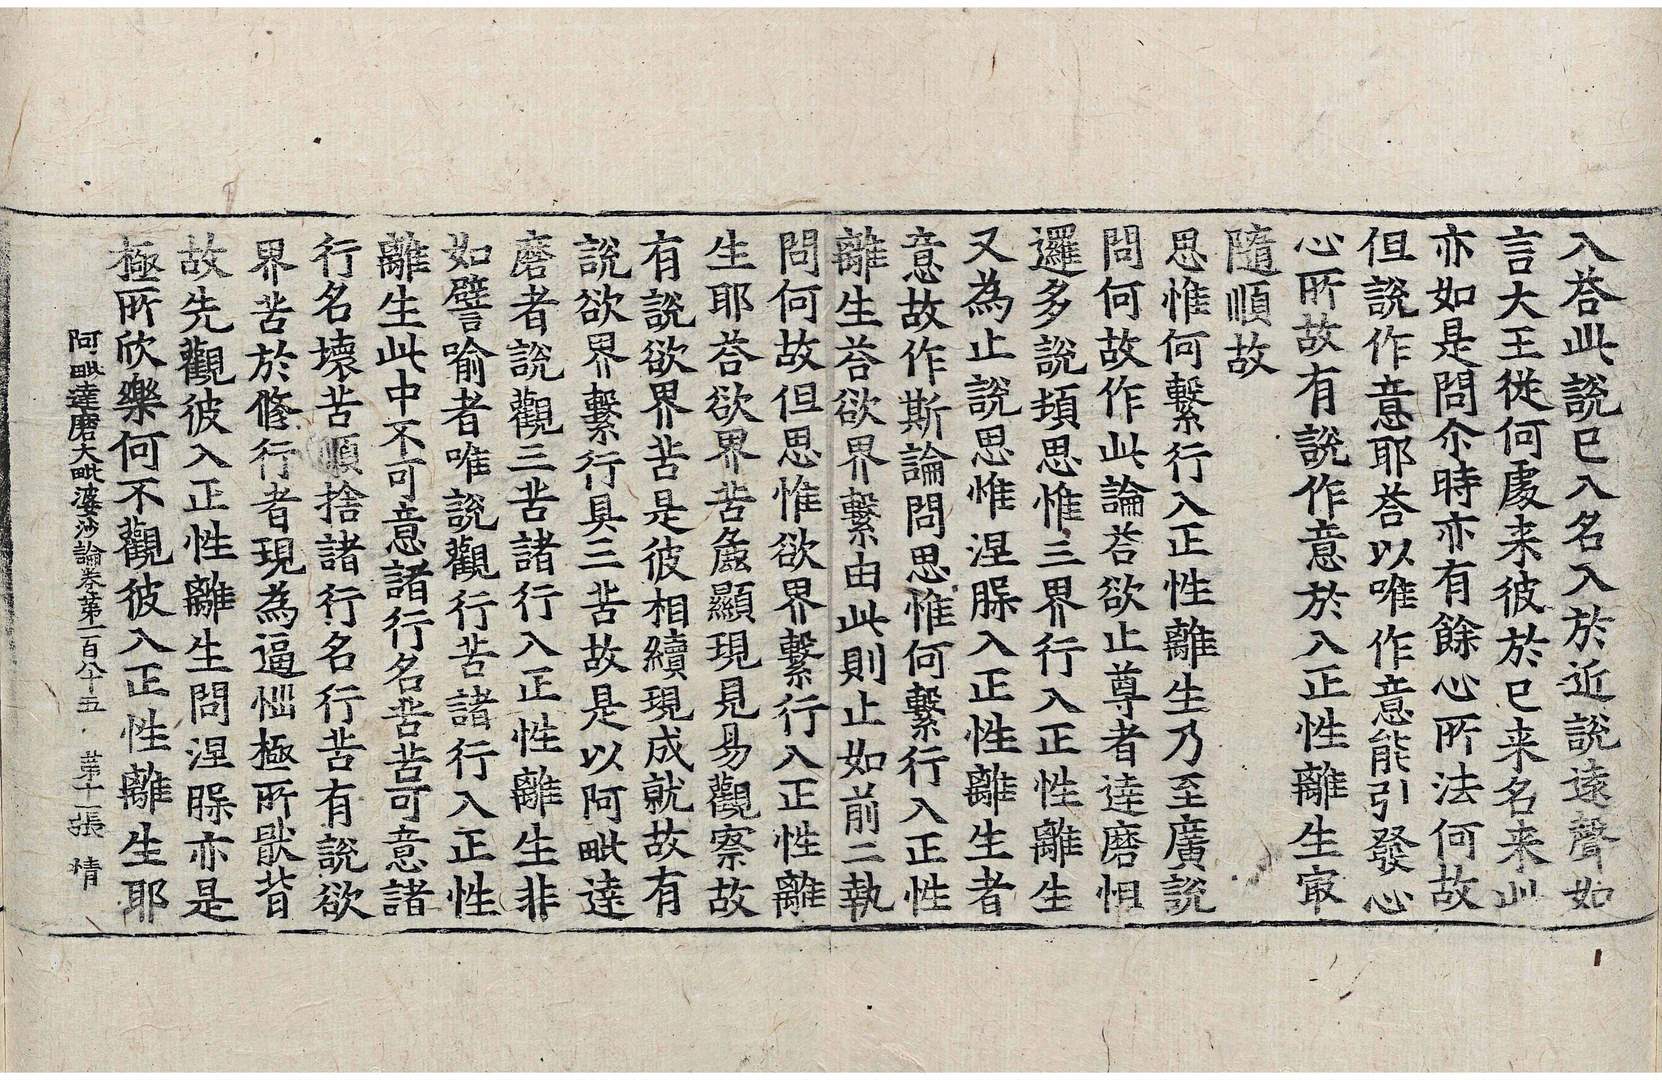 入荅此說已入名入於近說遠聲如
言大王從何處来彼於已来名来此
亦如是問尒時亦有餘心所法何故
但說作意耶荅以唯作意能引發心
心所故有說作意於入正性離生㝡
隨順故
思惟何繫行入正性離生乃至廣說
問何故作此論荅欲止尊者達磨怛
邏多說頓思惟三界行入正性離生
又為止說思惟涅槃入正性離生者
意故作斯論問思惟何繫行入正性
離生荅欲界繫由此則止如前二執
問何故但思惟欲界繫行入正性離
生耶荅欲界苦麁顯現見易觀察故
有說欲界苦是彼相續現成就故有
說欲界繫行具三苦故是以阿毗達
磨者說觀三苦諸行入正性離生非
如譬喻者唯說觀行苦諸行入正性
離生此中不可意諸行名苦苦可意諸
行名壞苦順捨諸行名行苦有說欲
界苦於修行者現為逼惱極所猒背
故先觀彼入正性離生問涅槃亦是
極所欣樂何不觀彼入正性離生耶
阿毗達磨大毗婆沙論卷第一百八十五 第十一張 情